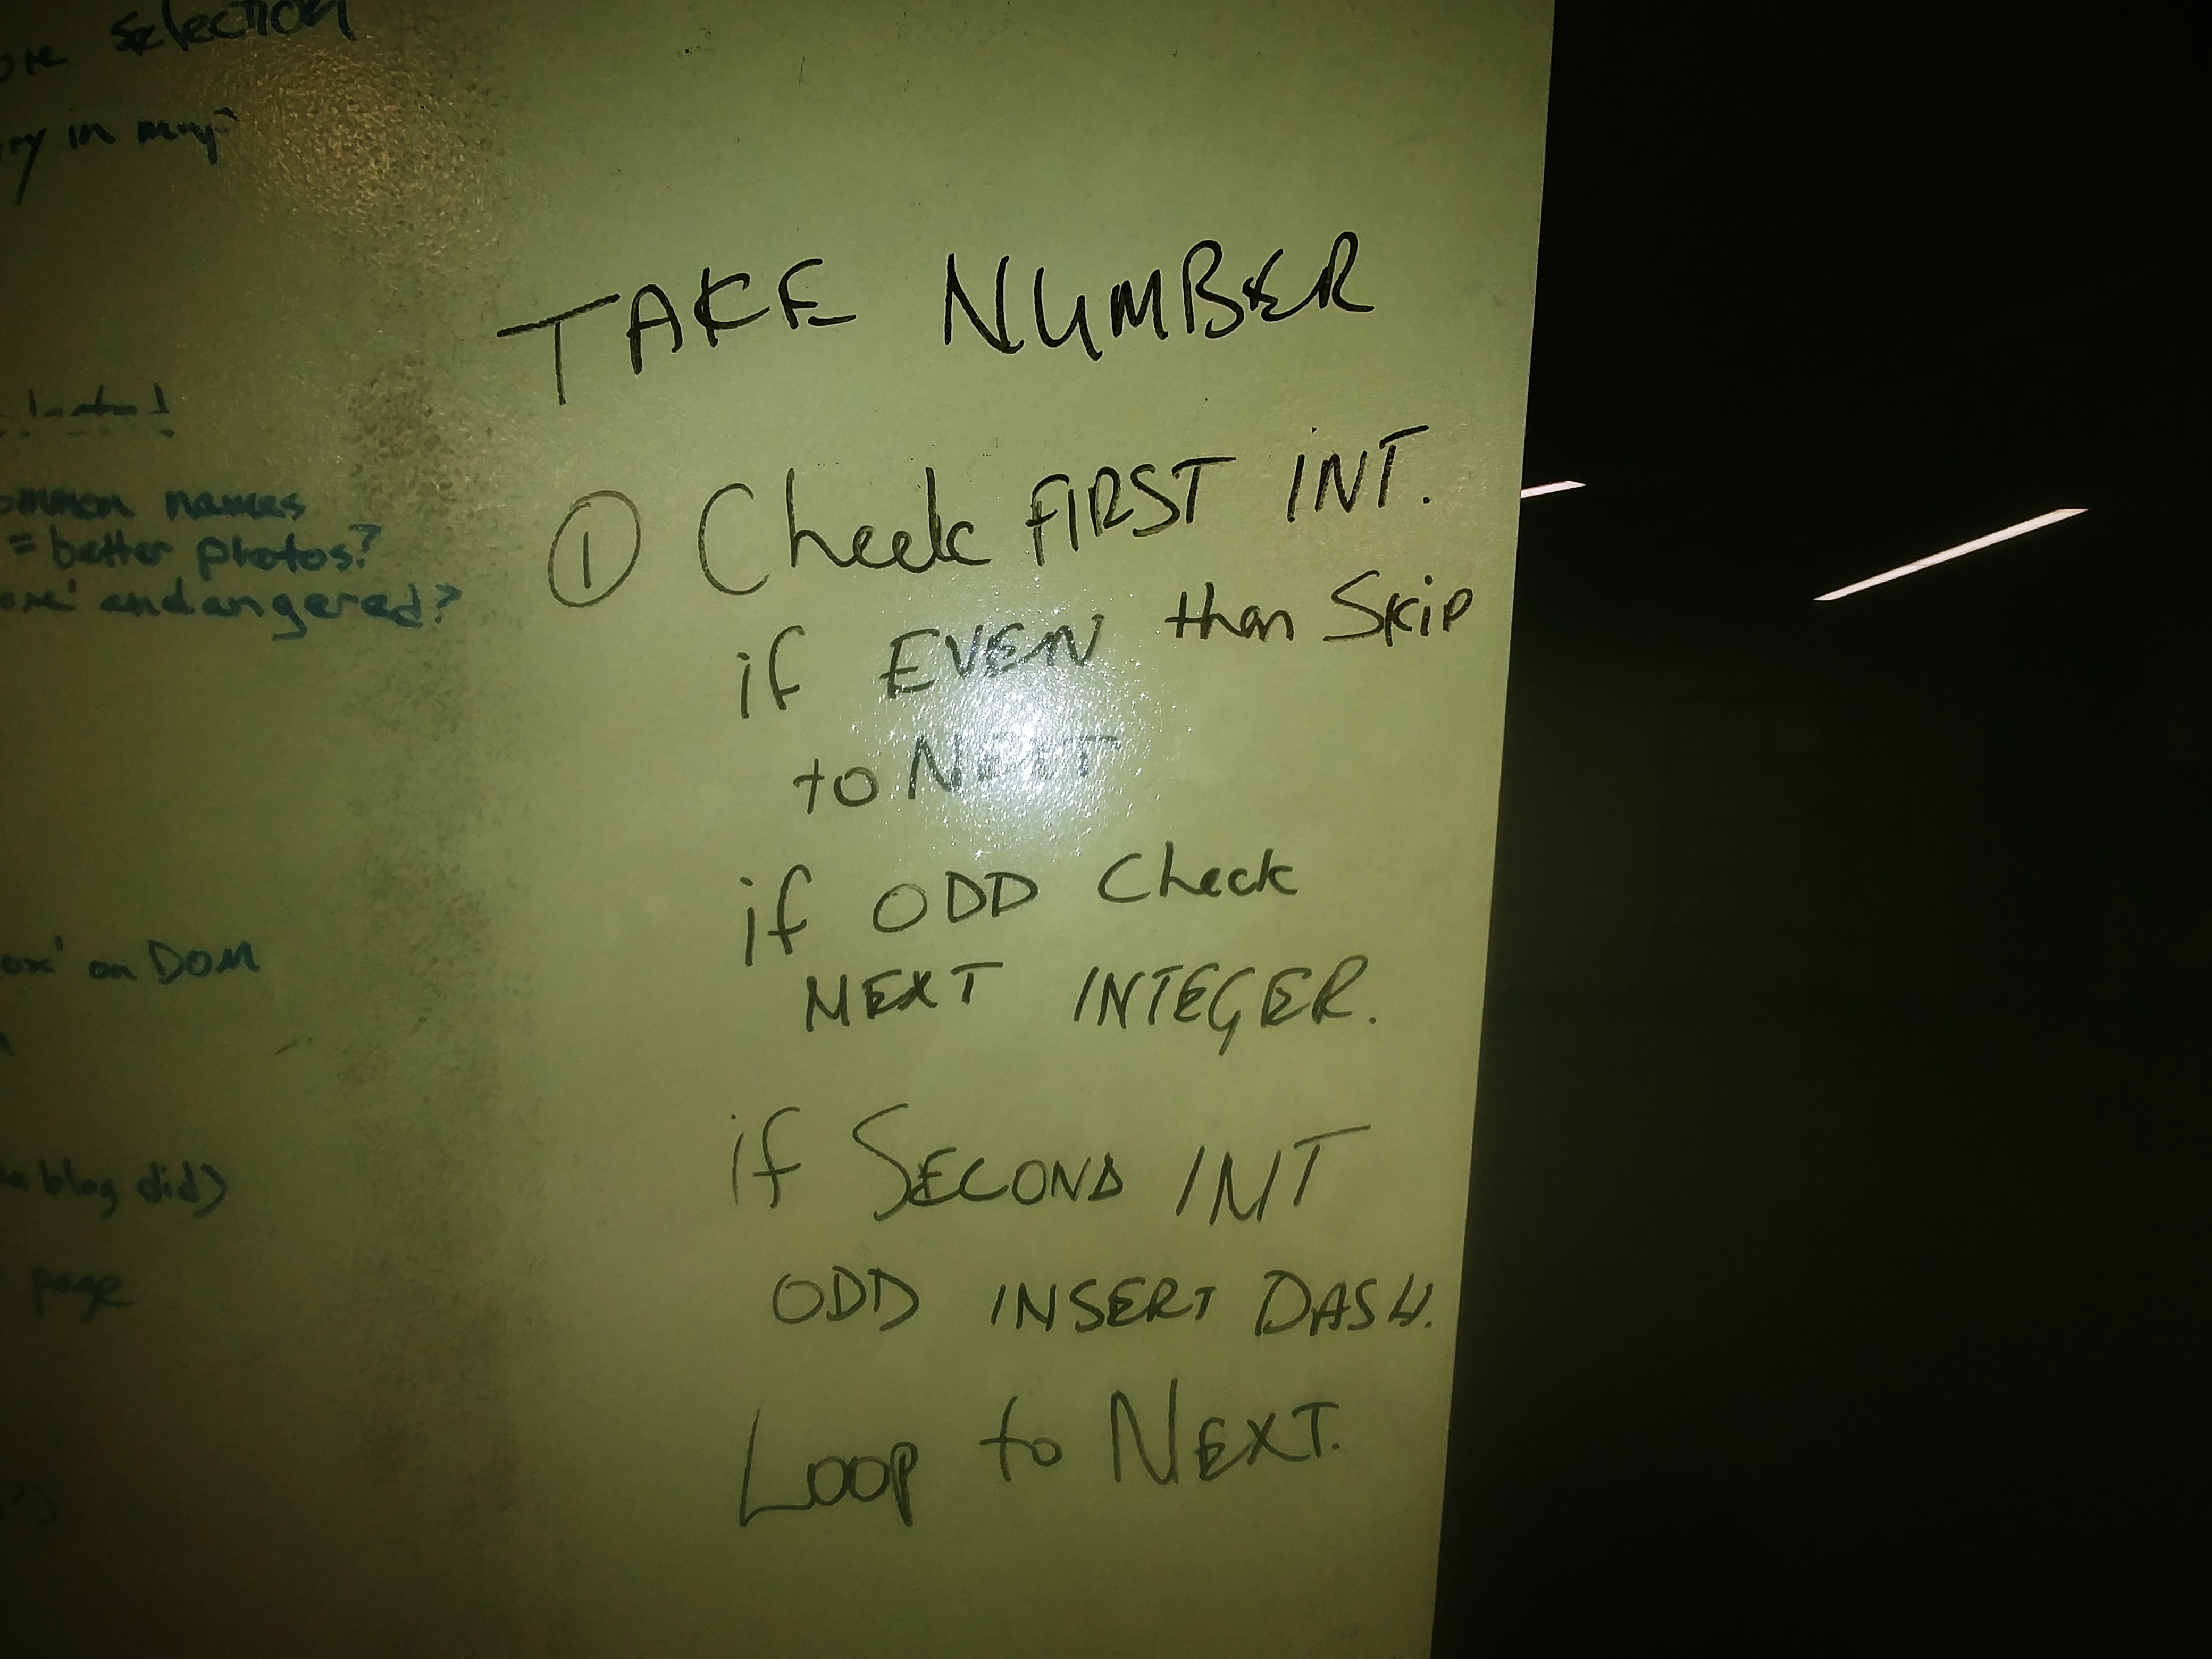 selection
in
ommon names
= better photos?
endangered?
on DOM
blog did)
page
TAKE NUMBER
① Check FIRST INT.
if EVEN then Skip
to NEXT
if ODD Check
NEXT INTEGER.
if SECOND INT
ODD INSERT DASH.
Loop to NEXT.